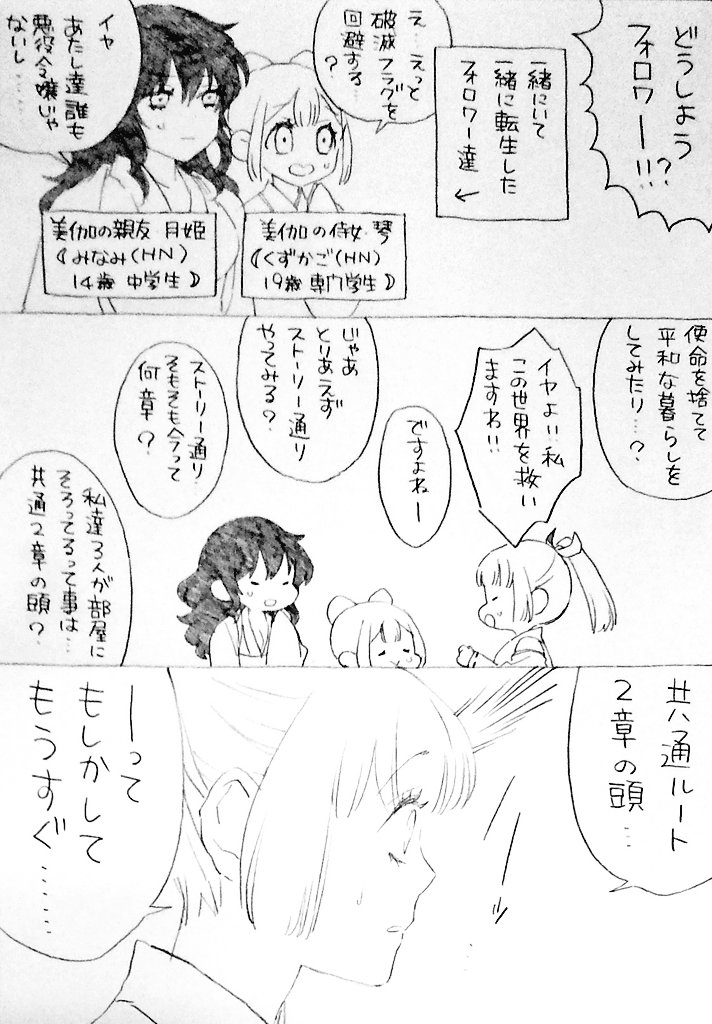 どうしよう?
フォロワー!!!
一緒にいて
一緒に転生した
フォロワー達
↓
え…えっと
破滅フラグを
回避する…
?
イヤ
あたし達誰も
悪役令嬢じゃ
ないし……
美伽の侍女 琴
(くずかご(HN)
19歳 専門学生)
美伽の親友 月姫
(みなみ(HN)
14歳 中学生)
使命を捨てて
平和な暮らしを
してみたり…?
イヤよ!!私
この世界を救い
ますわ!!
ですよねー
じゃあ
とりあえず
ストーリー通り
やってみる?
ストーリー通り…
そもそも今って
何章?
私達3人が部屋に
そろってるって事は…
共通2章の頭?
共通ルート
2章の頭…
ーって
もしかして
もうすぐ……